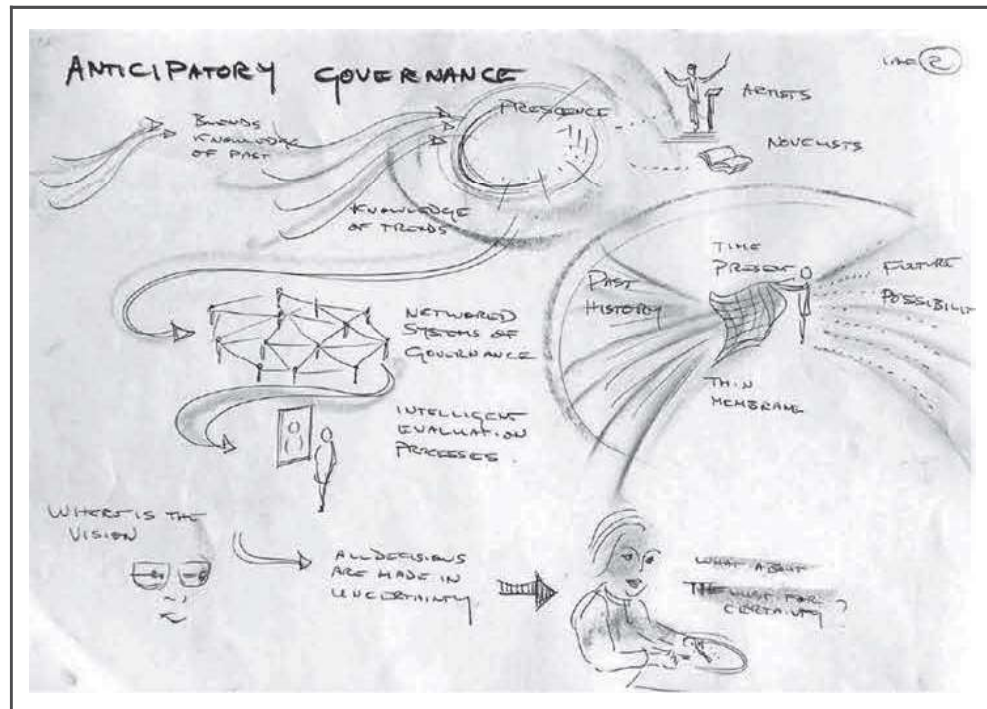 ANTICIPATORY GOVERNANCE
2
BLENDS
KNOWLEDGE
OF PAST
PRESCIENCE
ARTISTS
NOVELISTS
KNOWLEDGE
OF TRENDS
TIME
PRESENT
FUTURE
POSSIBILIT
PAST
HISTORY
THIN
MEMBRANE
NETWORKED
SYSTEMS OF
GOVERNANCE
INTELLIGENT
EVALUATION
PROCESSES.
WHERE IS THE
VISION
ALL DECISIONS
ARE MADE IN
UNCERTAINTY.
WHAT ABOUT
THE LUST FOR
CERTAINTY?